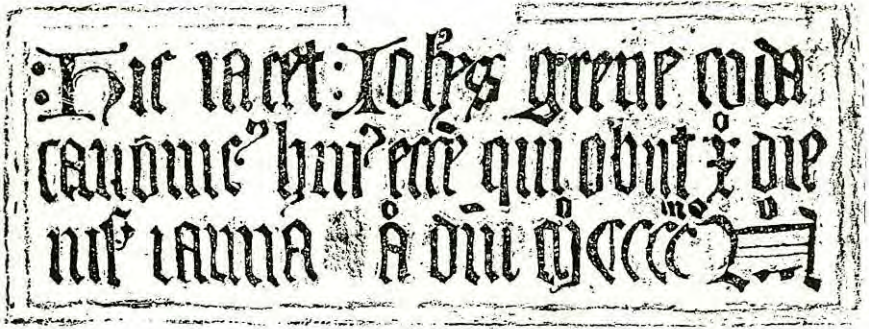 :Hic iacet :Iohes grene coda
canonic⁹ hui⁹ ecce qui obiit x° die
mes ianua a° dni m°cccc mo